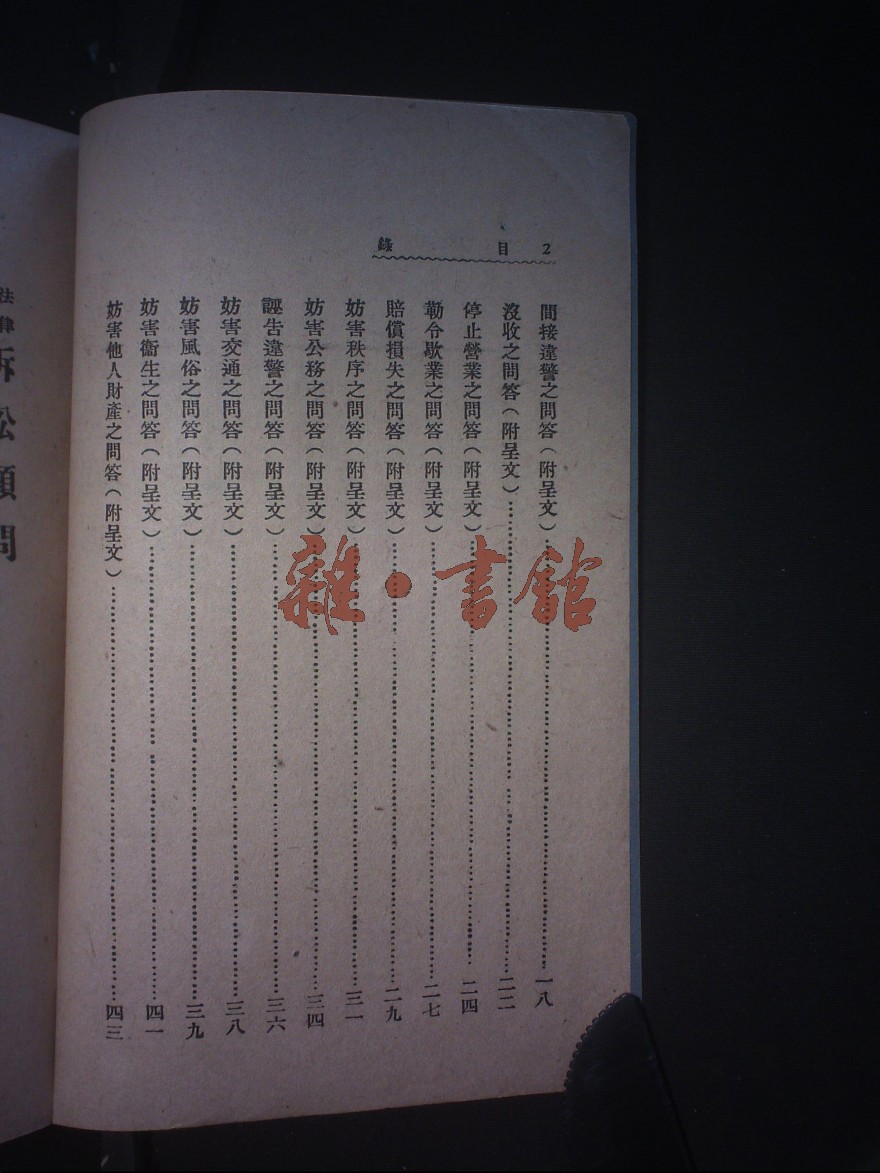 2 目錄
間接違警之問答(附呈文)……一八
沒收之問答(附呈文)……二二
停止營業之問答(附呈文)……二四
勒令歇業之問答(附呈文)……二七
賠償損失之問答(附呈文)……二九
妨害秩序之問答(附呈文)……三一
妨害公務之問答(附呈文)……三四
誣告違警之問答(附呈文)……三六
妨害交通之問答(附呈文)……三八
妨害風俗之問答(附呈文)……三九
妨害衞生之問答(附呈文)……四一
妨害他人財產之問答(附呈文)……四三
法律
訴訟顧問
雜·書館